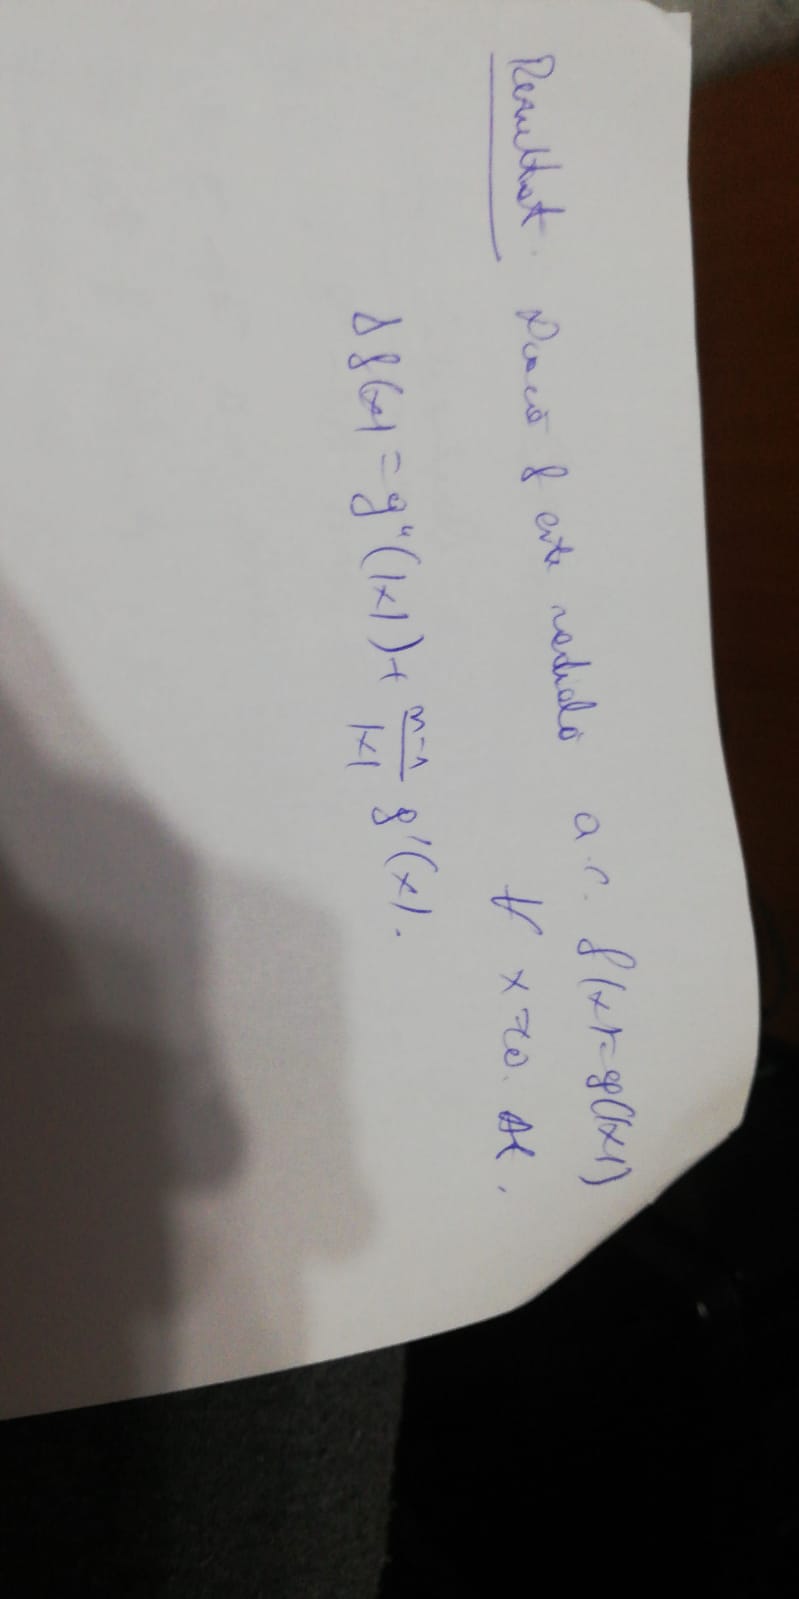 Rezultat. Dacă f este radială a.î. f(x)=g(|x|)
∀ x≠0. At.
Δf(x) = g"(|x|) + \frac{n-1}{|x|} g'(x).